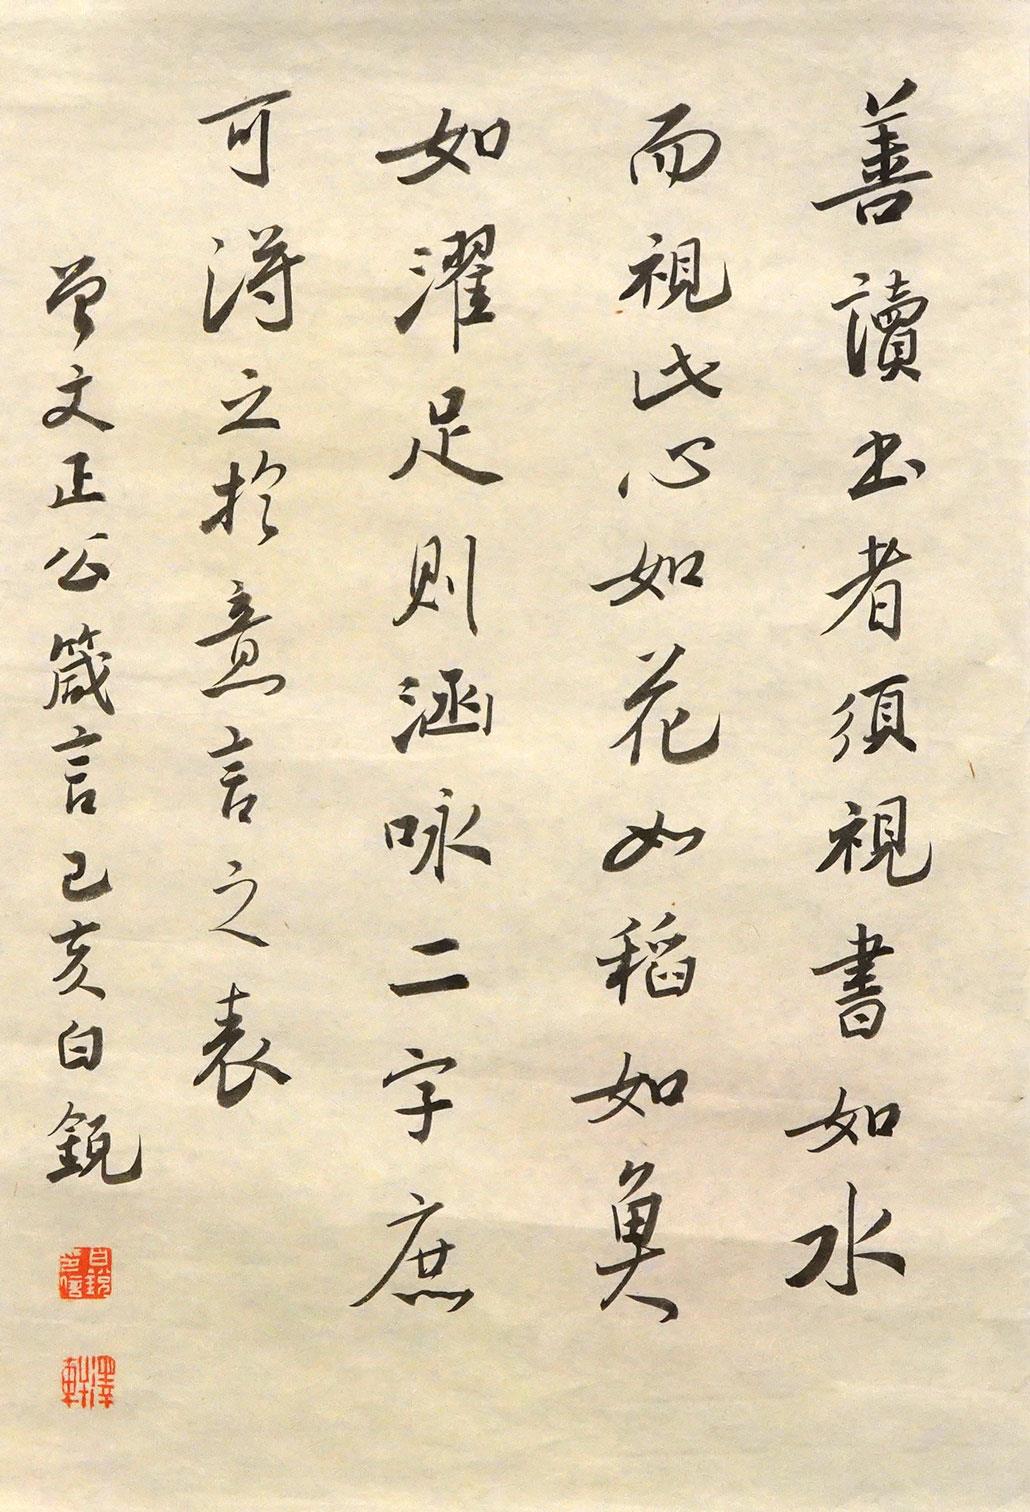 善讀书者須視書如水
而視此心如花如稻如魚
如濯足則涵咏二字庶
可得之於意言之表
曾文正公箴言己亥白銳
白銳之信
澤軒